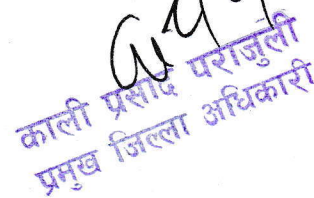 काली प्रसाद पराजुली
प्रमुख जिल्ला अधिकारी